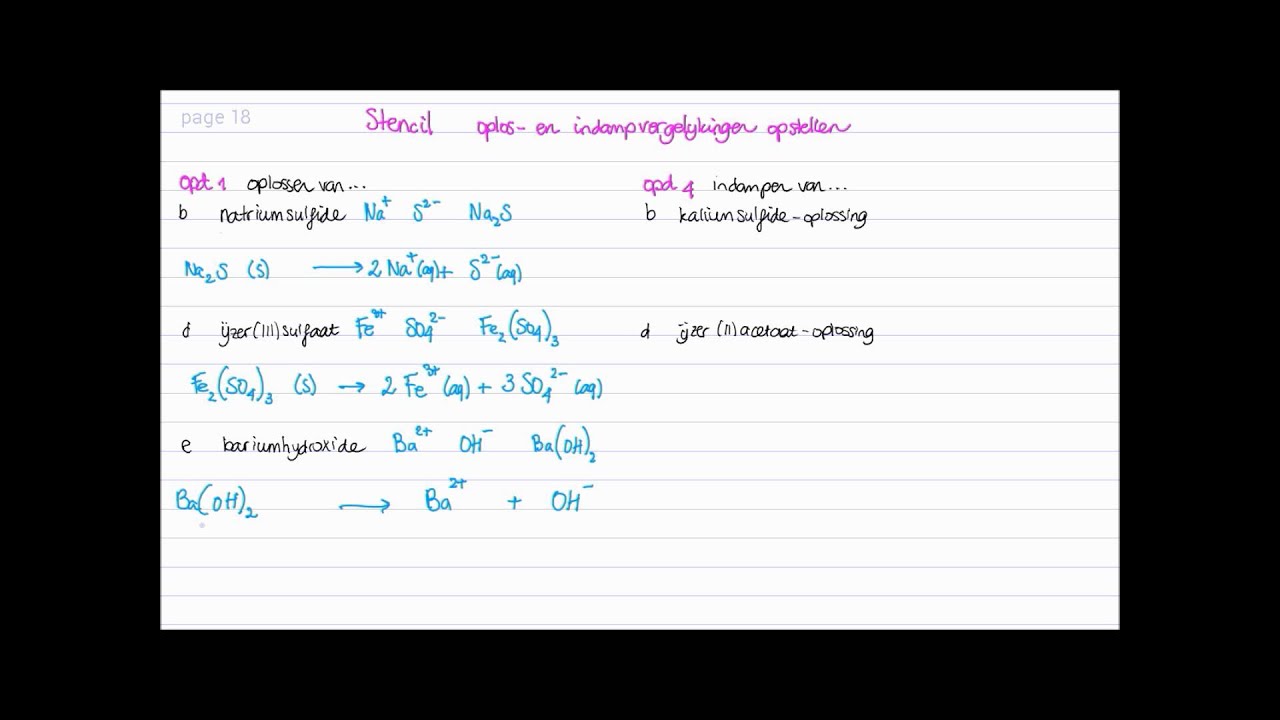 page 18
Stencil oplos- en indampvergelijkingen opstellen
opd 1 oplossen van...
b natriumsulfide Na⁺ S²⁻ Na₂S
Na₂S (s) → 2 Na⁺(aq) + S²⁻(aq)
d ijzer(III)sulfaat Fe³⁺ SO₄²⁻ Fe₂(SO₄)₃
Fe₂(SO₄)₃ (s) → 2 Fe³⁺(aq) + 3 SO₄²⁻ (aq)
e bariumhydroxide Ba²⁺ OH⁻ Ba(OH)₂
Ba(OH)₂ → Ba²⁺ + OH⁻
opd 4 indampen van...
b kaliumsulfide-oplossing
d ijzer(II)acetaat-oplossing